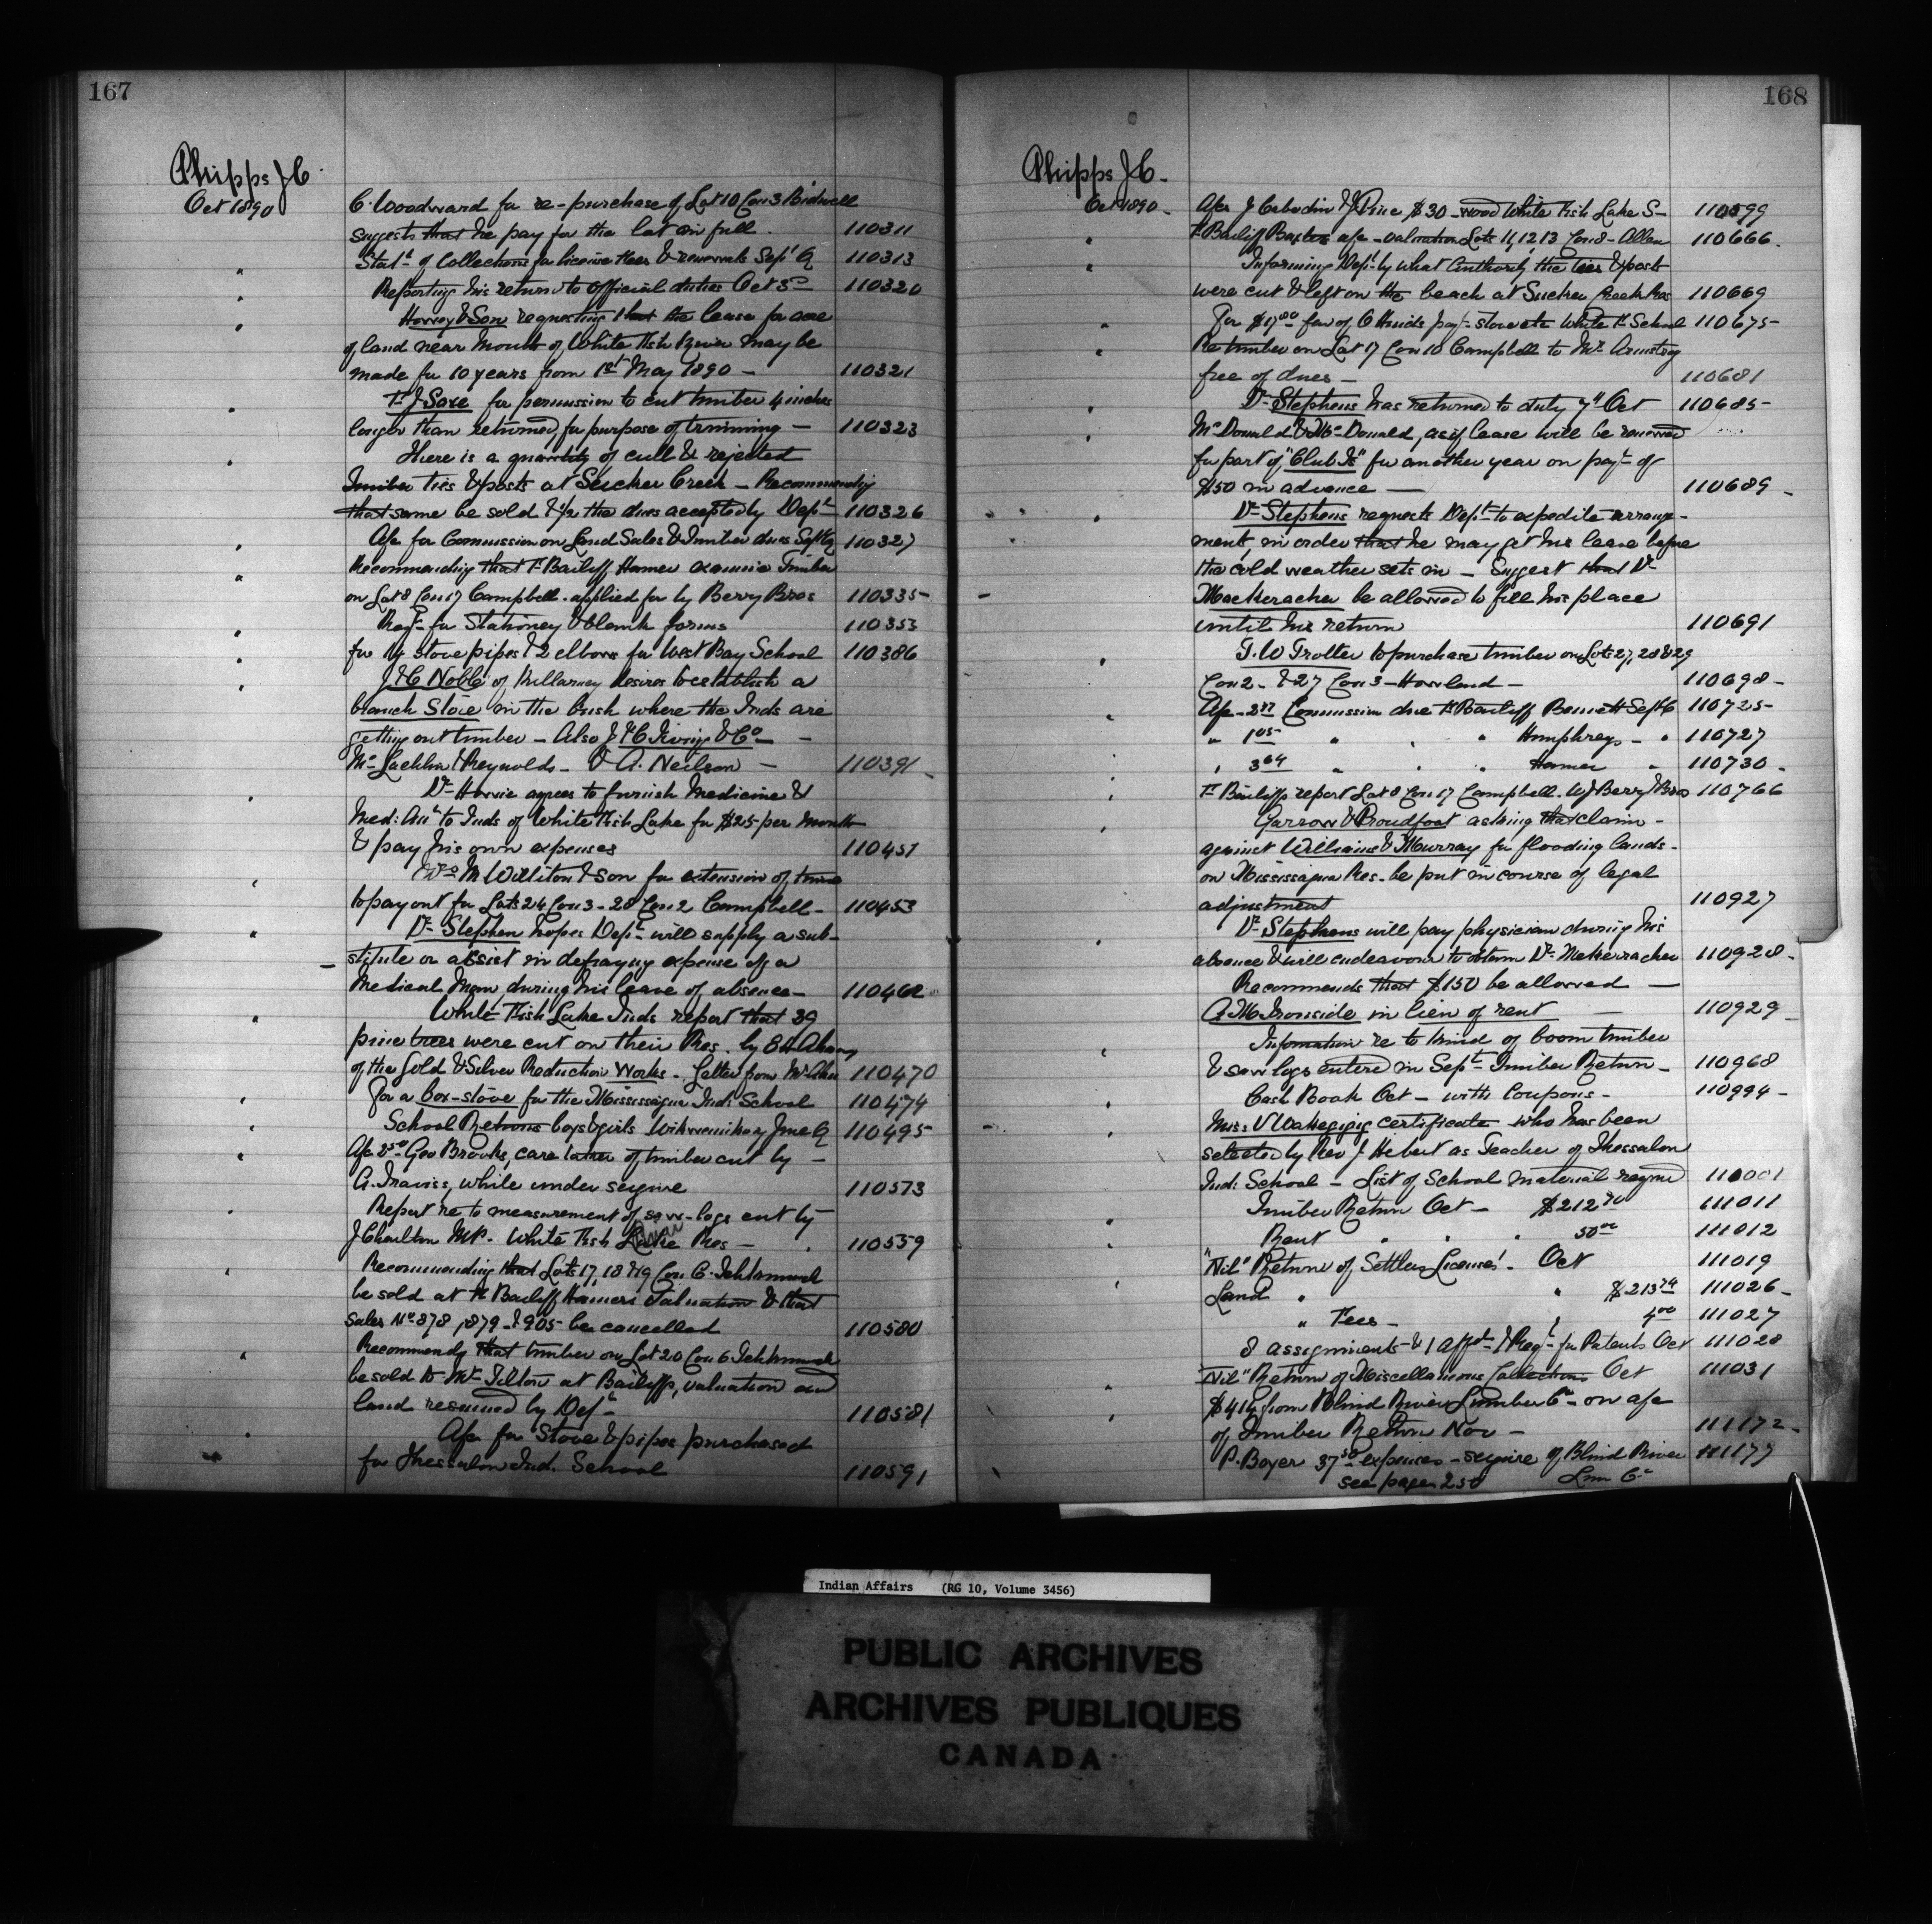 167
Phipps J C.
Oct 1890
C. Woodward for re-purchase of Lot 10 Con 3 Bidwell
suggests that he pay for the lot in full. 110311
" Stat^t of Collections for license fees & renewals Sept Q 110313
" Reporting his return to official duties Oct 3^d 110320
" Harvey & Son requesting that the lease for acre
of land near mouth of White Fish River may be
made for 10 years from 1st May 1890 — 110321
" T. J. Saxe for permission to cut timber 4 inches
longer than returned, for purpose of trimming — 110323
" There is a quantity of cull & rejected
timber ties & posts at Sucker Creek — Recommending
that same be sold & 1/2 the dues accepted by Dep^t 110326
" Afc for Commission on Land Sales & Timber dues Sept Q 110327
" Recommending that F. Bailiff Hamer examine Timber
on Lot 8 Con 17 Campbell. applied for by Berry Bros 110335-
" Req^n for Stationery & blank forms 110353
" for 14 stove pipes & 2 elbows for West Bay School 110386
" J & C Noble of Killarney desires to establish a
branch Store in the bush where the Inds are
getting out timber — Also J & C Irving & Co —
McLachlin & Reynolds — & A. Neilson — 110391
" Dr agrees to furnish Medicine &
Med: Att^n to Inds of White Fish Lake for $25 per month
& pay his own expenses 110451
" M Williton & Son for extension of time
to pay out for Lots 24 Con 3 - 28 Con 2 Campbell — 110453
" Dr Stephen hopes Dep^t will supply a sub-
stitute or assist in defraying expense of a
Medical Man, during his leave of absence — 110462
" White Fish Lake Inds report that 39
pine trees were cut on their Res. by
of the Gold & Silver Reduction Works. Letter from Mr 110470
" For a box-stove for the Mississagua Ind: School 110474
" School Returns boys & girls Wikwemikong June Q 110495
" Afc Geo Brooks, care taker of timber cut by —
A. Traviss, while under seizure 110573
" Report re to measurement of saw-logs cut by
J Charlton MP. White Fish River Res — 110559
" Recommending that Lots 17, 18 & 19 Con C. Tehkummah
be sold at F Bailiff Hamers Valuation & that
Sales No 878, 879 & 905 be cancelled 110580
" Recommends that timber on Lot 20 Con 6 Tehkummah
be sold to Mr Tilton at Bailiffs, valuation and
land resumed by Dep^t 110581
" Afc for Stove & pipes purchased
for Thessalon Ind. School 110591
168
Phipps J C.
Oct 1890 - Afcs J Cabodin & J Pine $30 - wood White Fish Lake S— 110599
" F. Bailiff Baxters afc - valuation Lots 11, 12 13 Con 8 - Allan 110666.
" Informing Dep^t by what authority the ties & posts
were cut & left on the beach at Sucker Creek Res 110669
" For $17^00 fav of C Hinds pay^t stove etc White F. School 110675-
" Re timber on Lot 17 Con 10 Campbell to Mr Armstrong
free of dues — 110681
" Dr Stephens has returned to duty 7th Oct 110685-
" McDonald & McDonald, ask if lease will be renewed
for part of "Club Is" for another year on pay^t of
$50 in advance — 110689 -
" Dr Stephens requests Dep^t to expedite arrange-
ment, in order that he may get his leave before
the cold weather sets in — Suggest that Dr
Mackeracher be allowed to fill his place
until his return 110691
" T. W Trotter to purchase timber on Lots 27, 28 & 29
Con 2 - & 27 Con 3 - Howland — 110698 -
" Afc - Commission due F. Bailiff Bennett Sept Q 110725-
" " 1^05 " " " Humphreys - " 110727
" " 3^64 " " " Hamer " 110730 -
" F. Bailiffs report Lot 8 Con 17 Campbell. W J Berry & Bros 110766
" Garrow & Proudfoot asking that claim -
against Williams & Murray for flooding lands -
on Mississagua Res. be put in course of legal
adjustment 110927
" Dr Stephens will pay physician during his
absence & will endeavour to obtain Dr McKerracher 110928 -
Recommends that $150 be allowed —
A. M. Ironside in lieu of rent — 110929 -
" Information re to kind of boom timber
& saw logs entered in Sept Timber Return — 110968
" Cash Book Oct — with Coupons — 110994 -
" Miss V Wakegijig certificate who has been
selected by Rev J Hebert as Teacher of Thessalon
Ind: School — List of School material reqrd 111001
" Timber Return Oct — $212^70 111011
" Rent " " " 50^00 111012
"Nil" Return of Settlers Licenses! - Oct 111019
" Land " " $213^74 111026 -
" Fees — " 4^00 111027
8 assignments & 1 Aff^t - 1 Req^n for Patents Oct 111028
" "Nil" Return of Miscellaneous Collections Oct 111031
" $414 from Blind River Lumber Co on afc
of Timber Return Nov — 111172 -
P. Boyer 37^50 expenses - seizure of Blind River 111177
see page 250 Lum Co
Indian Affairs (RG 10, Volume 3456)
PUBLIC ARCHIVES
ARCHIVES PUBLIQUES
CANADA